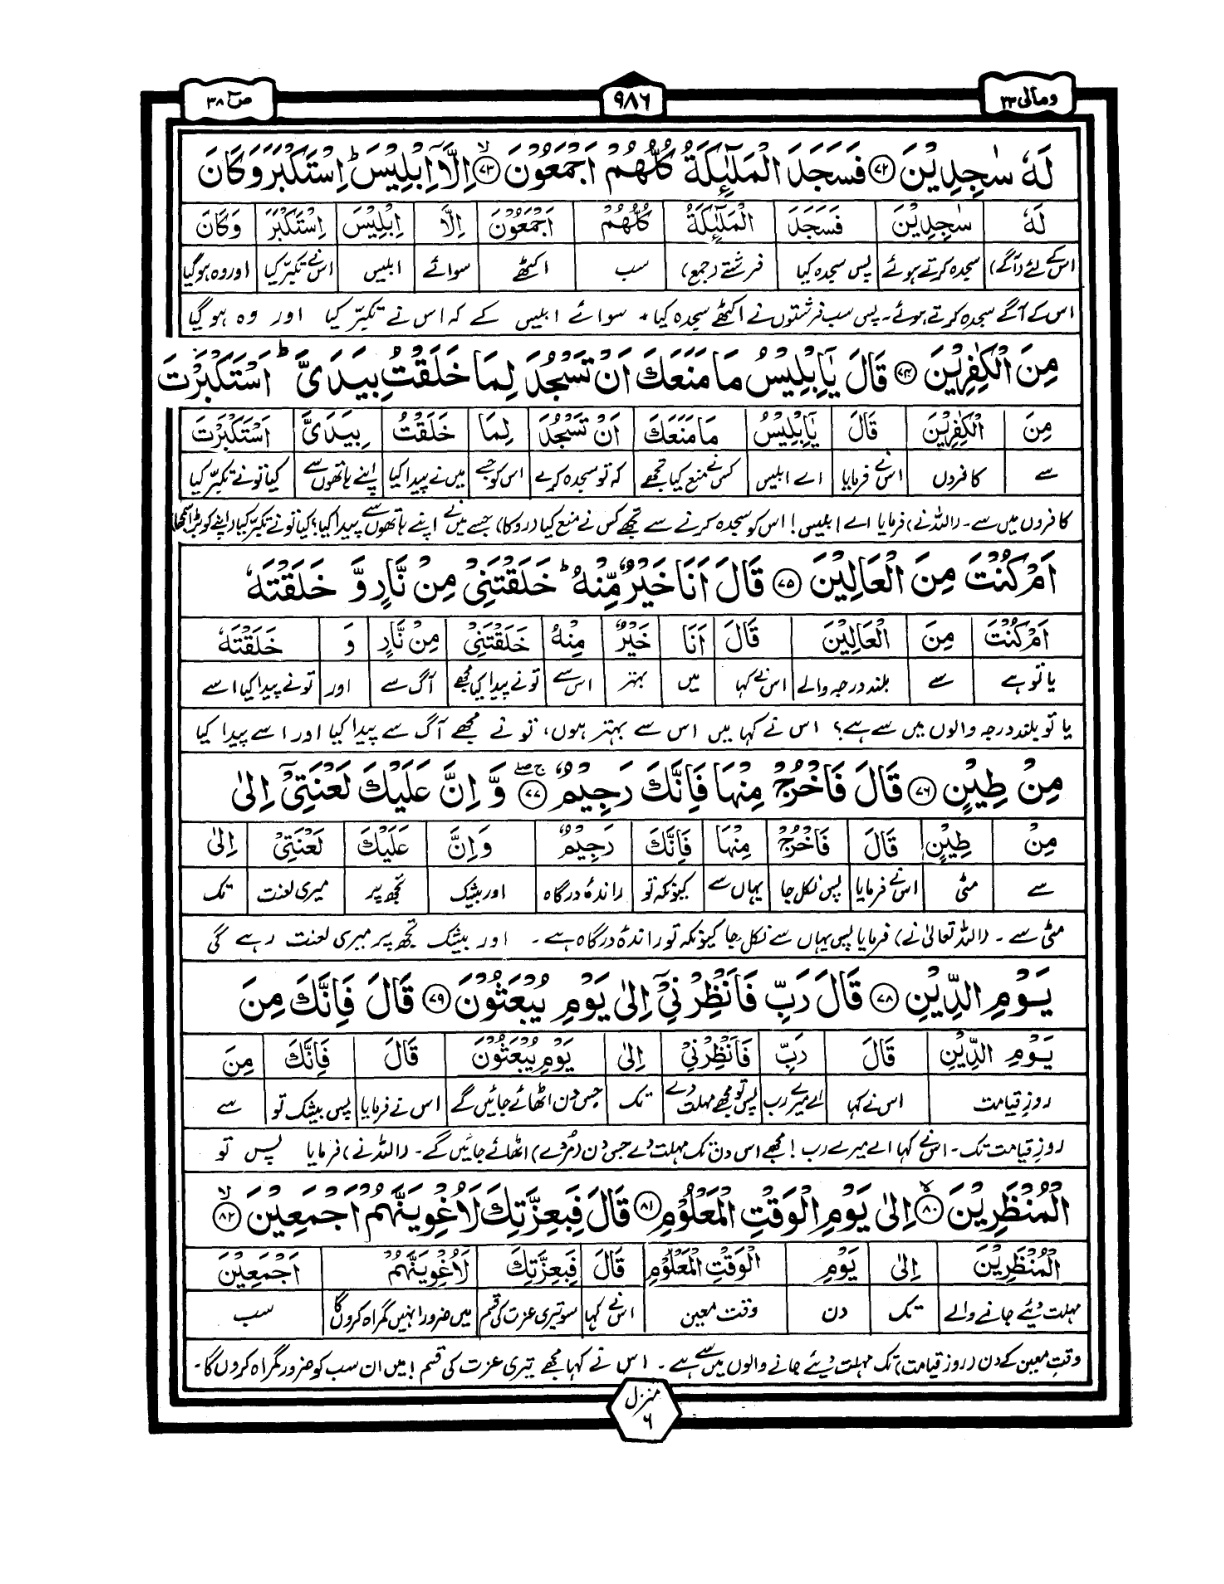 ومالی ۲۳
۹۸۶
صٓ ۳۸
لَهٗ سٰجِدِیْنَ ۷۲ فَسَجَدَ الْمَلٰٓئِکَةُ کُلُّهُمْ اَجْمَعُوْنَ ۷۳ اِلَّاۤ اِبْلِیْسَ ؕ اِسْتَکْبَرَ وَکَانَ
لَهٗ سٰجِدِیْنَ فَسَجَدَ الْمَلٰٓئِکَةُ کُلُّهُمْ اَجْمَعُوْنَ اِلَّا اِبْلِیْسَ اِسْتَکْبَرَ وَکَانَ
اس کے لئے (آگے) سجدہ کرتے ہوئے پس سجدہ کیا فرشتے (جمع) سب اکٹھے سوائے ابلیس اس نے تکبّر کیا اور وہ ہو گیا
اس کے آگے سجدہ کرتے ہوئے۔ پس سب فرشتوں نے اکٹھے سجدہ کیا۔ سوائے ابلیس کے کہ اس نے تکبّر کیا اور وہ ہو گیا
مِنَ الْکٰفِرِیْنَ ۷۴ قَالَ یٰۤاِبْلِیْسُ مَا مَنَعَکَ اَنْ تَسْجُدَ لِمَا خَلَقْتُ بِیَدَیَّ ؕ اَسْتَکْبَرْتَ
مِنَ الْکٰفِرِیْنَ قَالَ یٰۤاِبْلِیْسُ مَا مَنَعَکَ اَنْ تَسْجُدَ لِمَا خَلَقْتُ بِیَدَیَّ اَسْتَکْبَرْتَ
سے کافروں اس نے فرمایا اے ابلیس کس نے منع کیا تجھے کہ تو سجدہ کرے اس کو جسے میں نے پیدا کیا اپنے ہاتھوں سے کیا تو نے تکبّر کیا
کافروں میں سے۔ (اللہ نے) فرمایا اے ابلیس! اس کو سجدہ کرنے سے تجھے کس نے منع کیا (روکا) جسے میں نے اپنے ہاتھوں سے پیدا کیا؟ کیا تو نے تکبّر کیا (اپنے کو بڑا سمجھا)
اَمْ کُنْتَ مِنَ الْعَالِیْنَ ۷۵ قَالَ اَنَا خَیْرٌ مِّنْهُ ؕ خَلَقْتَنِیْ مِنْ نَّارٍ وَّ خَلَقْتَهٗ
اَمْ کُنْتَ مِنَ الْعَالِیْنَ قَالَ اَنَا خَیْرٌ مِنْهُ خَلَقْتَنِیْ مِنْ نَّارٍ وَ خَلَقْتَهٗ
یا تو ہے سے بلند درجہ والے اس نے کہا میں بہتر اس سے تو نے پیدا کیا مجھے آگ سے اور تو نے پیدا کیا اسے
یا تو بلند درجہ والوں میں سے ہے؟ اس نے کہا میں اس سے بہتر ہوں، تو نے مجھے آگ سے پیدا کیا اور اسے پیدا کیا
مِنْ طِیْنٍ ۷۶ قَالَ فَاخْرُجْ مِنْهَا فَاِنَّکَ رَجِیْمٌ ۷۷ وَّ اِنَّ عَلَیْکَ لَعْنَتِیْۤ اِلٰی
مِنْ طِیْنٍ قَالَ فَاخْرُجْ مِنْهَا فَاِنَّکَ رَجِیْمٌ وَاِنَّ عَلَیْکَ لَعْنَتِیْۤ اِلٰی
سے مٹی اس نے فرمایا پس نکل جا یہاں سے کیونکہ تو راندۂ درگاہ اور بیشک تجھ پر میری لعنت تک
مٹی سے۔ (اللہ تعالیٰ نے) فرمایا پس یہاں سے نکل جا کیونکہ تو راندۂ درگاہ ہے۔ اور بیشک تجھ پر میری لعنت رہے گی
یَوْمِ الدِّیْنِ ۷۸ قَالَ رَبِّ فَاَنْظِرْنِیْۤ اِلٰی یَوْمِ یُبْعَثُوْنَ ۷۹ قَالَ فَاِنَّکَ مِنَ
یَوْمِ الدِّیْنِ قَالَ رَبِّ فَاَنْظِرْنِیْۤ اِلٰی یَوْمِ یُبْعَثُوْنَ قَالَ فَاِنَّکَ مِنَ
روزِ قیامت اس نے کہا اے میرے رب پس تو مجھے مہلت دے تک جس دن اٹھائے جائیں گے اس نے فرمایا پس بیشک تو سے
روزِ قیامت تک۔ اس نے کہا اے میرے رب! مجھے اس دن تک مہلت دے جس دن (مُردے) اٹھائے جائیں گے۔ (اللہ نے) فرمایا پس تو
الْمُنْظَرِیْنَ ۸۰ اِلٰی یَوْمِ الْوَقْتِ الْمَعْلُوْمِ ۸۱ قَالَ فَبِعِزَّتِکَ لَاُغْوِیَنَّهُمْ اَجْمَعِیْنَ ۸۲
الْمُنْظَرِیْنَ اِلٰی یَوْمِ الْوَقْتِ الْمَعْلُوْمِ قَالَ فَبِعِزَّتِکَ لَاُغْوِیَنَّهُمْ اَجْمَعِیْنَ
مہلت دیئے جانے والے تک دن وقت معین اس نے کہا سو تیری عزت کی قسم میں ضرور انہیں گمراہ کروں گا سب
وقت معین کے دن (روز قیامت) تک مہلت دیئے جانے والوں میں سے ہے۔ اس نے کہا مجھے تیری عزت کی قسم! میں ان سب کو ضرور گمراہ کروں گا۔
منزل
۶